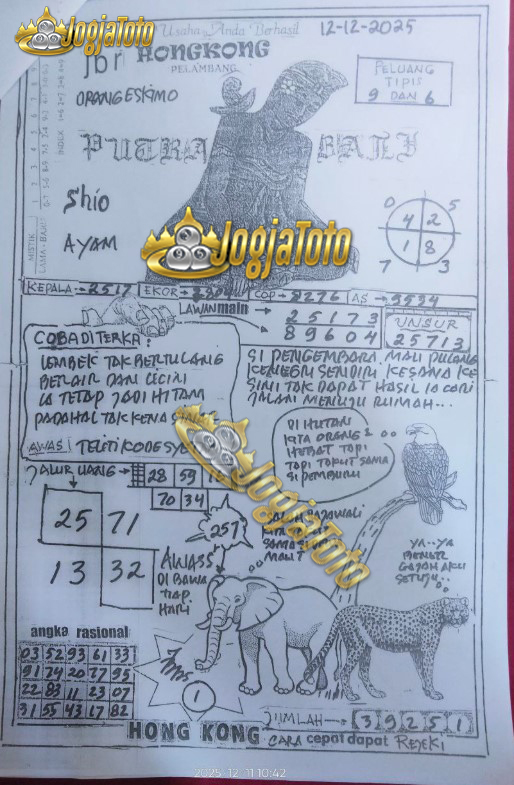 JOGJATOTO
Usaha Anda Berhasil
12-12-2025
jbr HONGKONG
PELAMBANG
ORANG ESKIMO
PELUANG
TIPIS
9 DAN 6
PUTRA BALI
Shio
AYAM
0 5
4 2
1 8
7 3
JOGJATOTO
KEPALA = 2517 EKOR = COP = 8276 AS = 9534
LAWAN main
25173
89604
UNSUR
25713
COBA DITERKA:
LEMBEK TAK BERTULANG
BERAIR DAN LICIN
IA TETAP JADI HITAM
PADAHAL TAK KENA
AWAS! TELITI KODE
SI PENGEMBARA MAU PULANG
KENEGRI SENDIRI KESANA KE
SINI TAK DAPAT HASIL IA CARI
JALAN MENUJU RUMAH...
DI HUTAN
KITA ORANG 2
HEBAT TAPI
TAPI TAKUT SAMA
SI PEMBURU
JALUR UANG
28 59
70 34
25 71
13 32
257
AWASS
DI BAWA
TIAP
HARI
JOGJATOTO
YA...YA
BENAR
GAJAH AKU
SETUJU..
angka rasional
03 52 93 61 33
91 74 20 27 95
22 83 11 23 07
31 55 43 67 82
1
JUMLAH
3 9 2 5 1
HONG KONG CARA cepat dapat REJEKI
2025-12-11 10:42